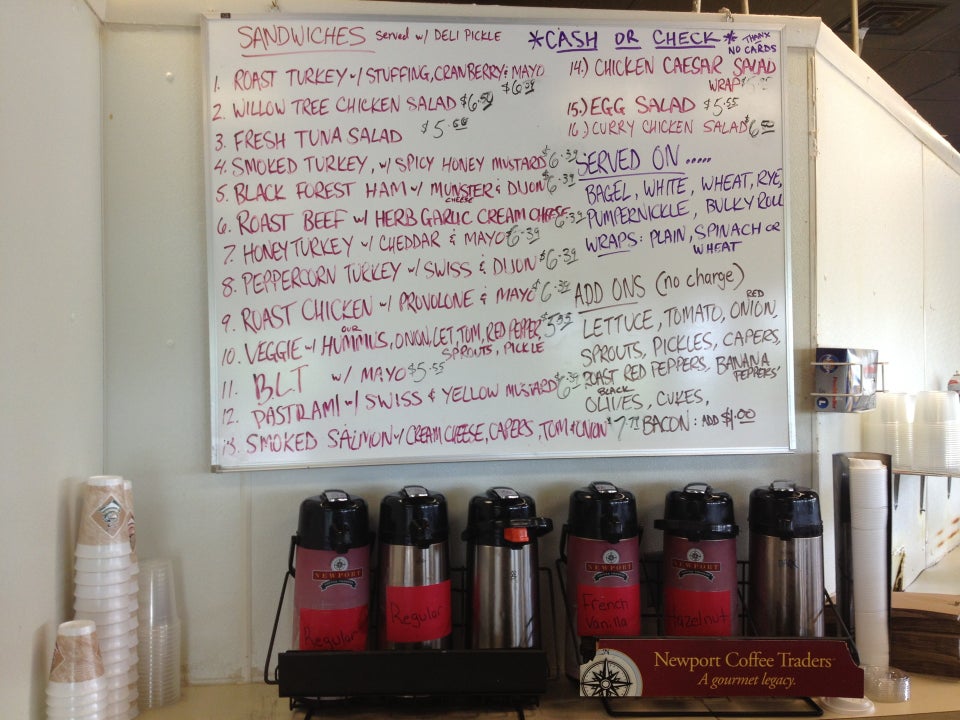 SANDWICHES served w/ DELI PICKLE
1. ROAST TURKEY w/ STUFFING, CRANBERRY & MAYO
$6.39
2. WILLOW TREE CHICKEN SALAD $6.50
3. FRESH TUNA SALAD $5.55
4. SMOKED TURKEY, w/ SPICY HONEY MUSTARD $6.39
5. BLACK FOREST HAM w/ MUNSTER & DIJON $6.39
CHEESE
6. ROAST BEEF w/ HERB GARLIC CREAM CHEESE 6.39
7. HONEY TURKEY w/ CHEDDAR & MAYO $6.39
8. PEPPERCORN TURKEY w/ SWISS & DIJON $6.39
9. ROAST CHICKEN w/ PROVOLONE & MAYO $6.39
OUR
10. VEGGIE w/ HUMMUS, ONION, LET, TOM, RED PEPPER, $5.55
SPROUTS, PICKLE
11. BLT w/ MAYO $5.55
12. PASTRAMI w/ SWISS & YELLOW MUSTARD $6.39
13. SMOKED SALMON w/ CREAM CHEESE, CAPERS, TOM & ONION $7.79
*CASH OR CHECK* THANX
NO CARDS
14.) CHICKEN CAESAR SALAD
WRAP
15.) EGG SALAD $5.55
16.) CURRY CHICKEN SALAD
SERVED ON.....
BAGEL, WHITE, WHEAT, RYE,
PUMPERNICKLE, BULKY ROLL
WRAPS: PLAIN, SPINACH OR
WHEAT
ADD ONS (no charge)
RED
LETTUCE, TOMATO, ONION,
SPROUTS, PICKLES, CAPERS,
ROAST RED PEPPERS, BANANA
PEPPERS
BLACK
OLIVES, CUKES,
BACON: ADD $1.00
NEWPORT
Regular
Regular
NEWPORT
French
Vanilla
NEWPORT
Hazelnut
N
Newport Coffee Traders
A gourmet legacy.